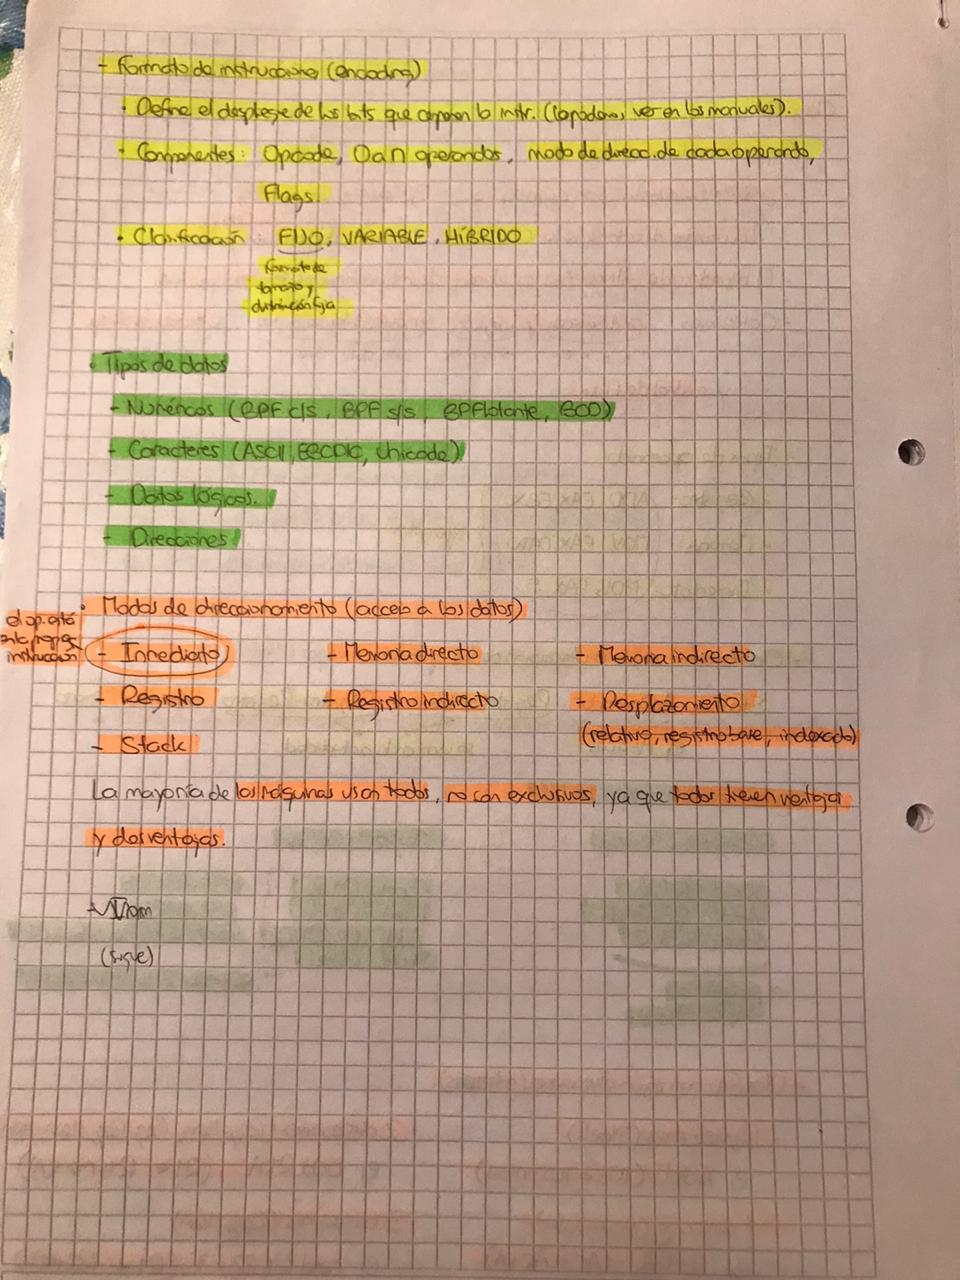 - Formato de instrucciones (encoding)
• Define el despliegue de los bits que componen la instr. (lo podemos ver en los manuales).
• Componentes: Opcode, 0 a n operandos, modo de direcc. de cada operando,
Flags.
• Clasificación: FIJO, VARIABLE, HÍBRIDO
formato de
tamaño y
distribución fija
• Tipos de datos
- Numéricos (BPF c/s, BPF s/s, BPFlotante, BCD)
- Caracteres (ASCII, EBCDIC, Unicode)
- Datos lógicos.
- Direcciones
• Modos de direccionamiento (acceso a los datos)
el op. está
en la propia
instrucción
- Inmediato - Memoria directo - Memoria indirecto
- Registro - Registro indirecto - Desplazamiento
- Stack (relativo, registro base, indexado)
La mayoría de las máquinas usan todos, no son exclusivos, ya que todos tienen ventajas
y desventajas.
(sigue)